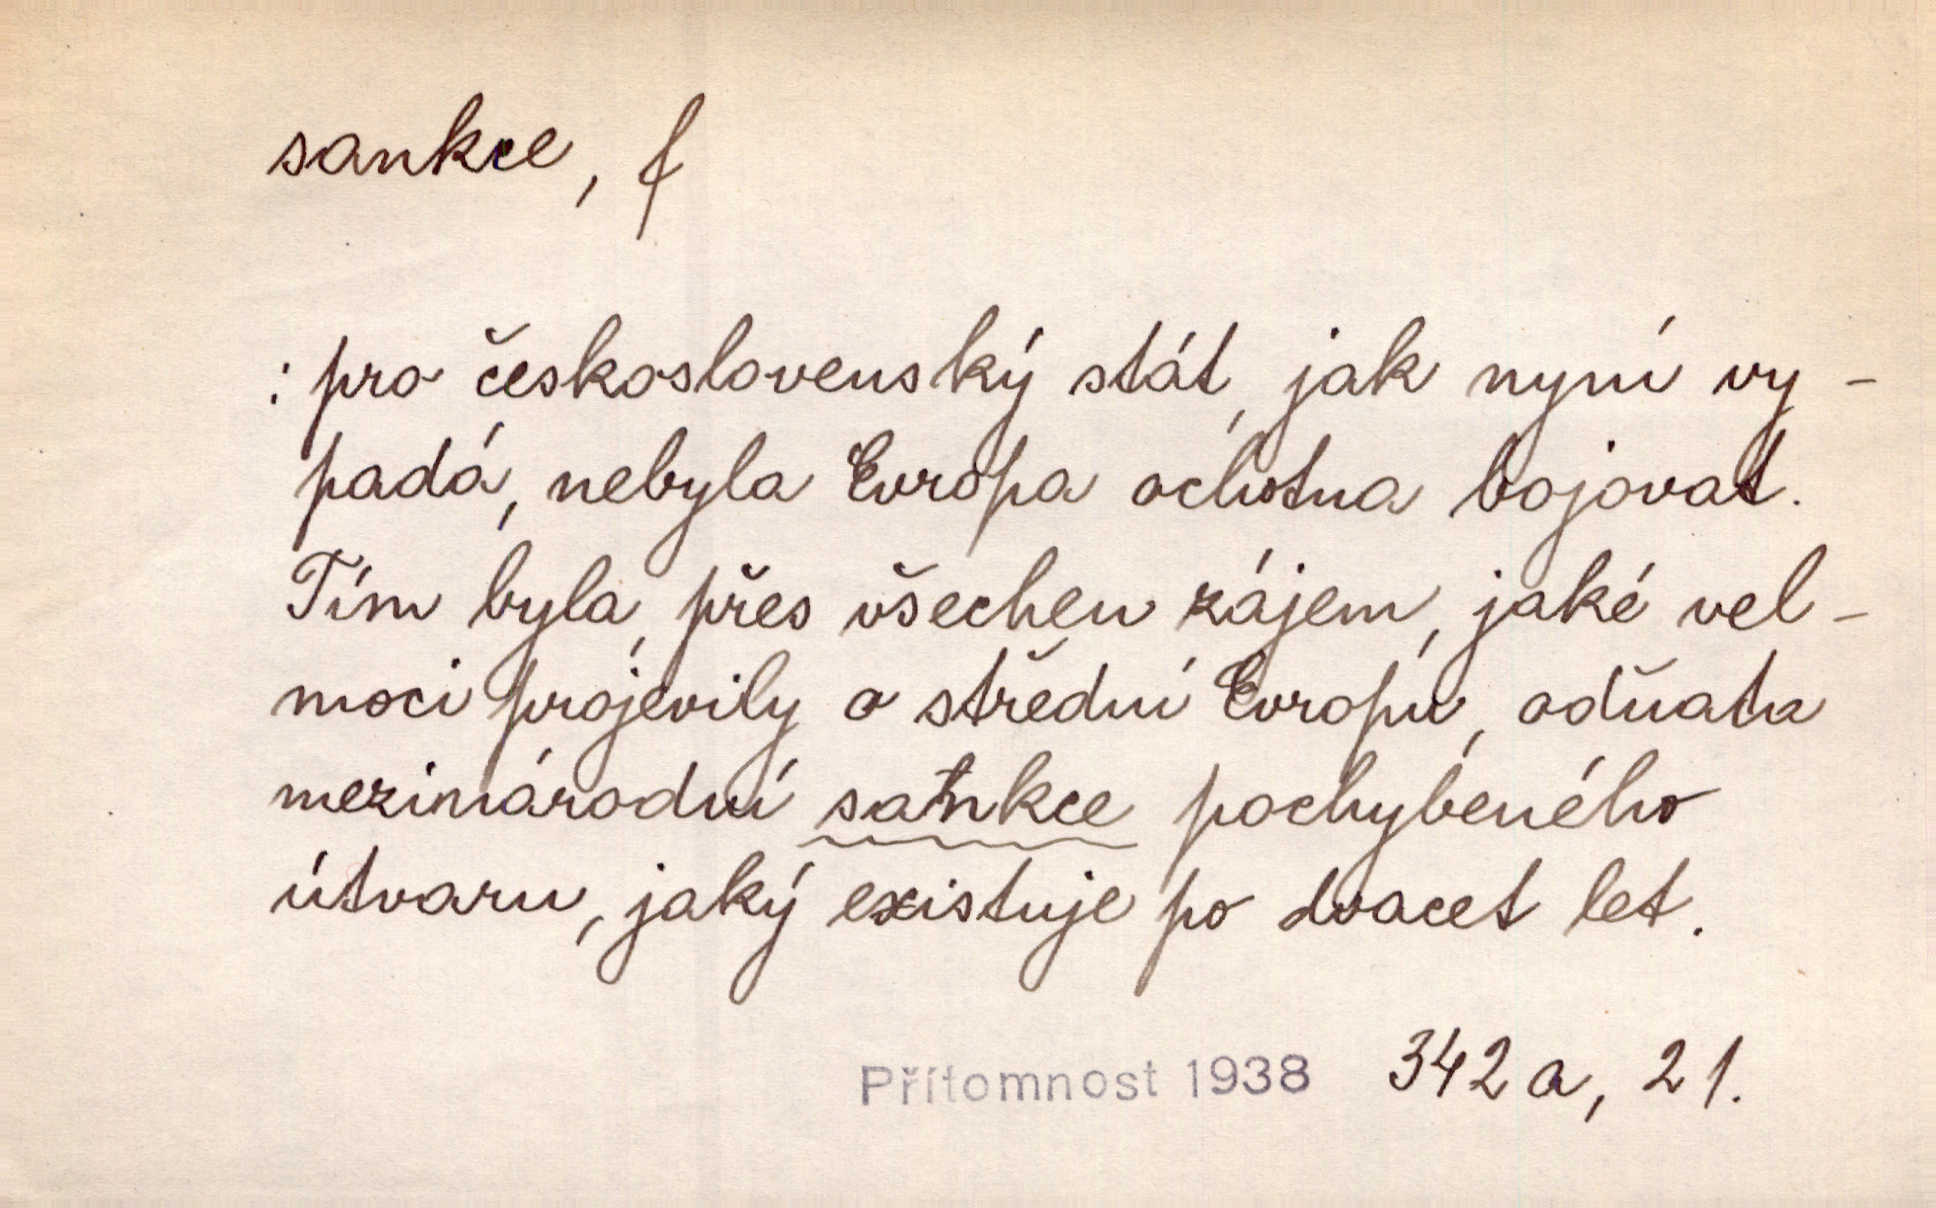 sankce, f
: pro československý stát, jak nyní vy-
padá, nebyla Evropa ochotna bojovat.
Tím byla, přes všechen zájem, jaké vel-
moci projevily o střední Evropu, odňata
mezinárodní sankce pochybeného
útvaru, jaký existuje po dvacet let.
Přítomnost 1938 342 a, 21.